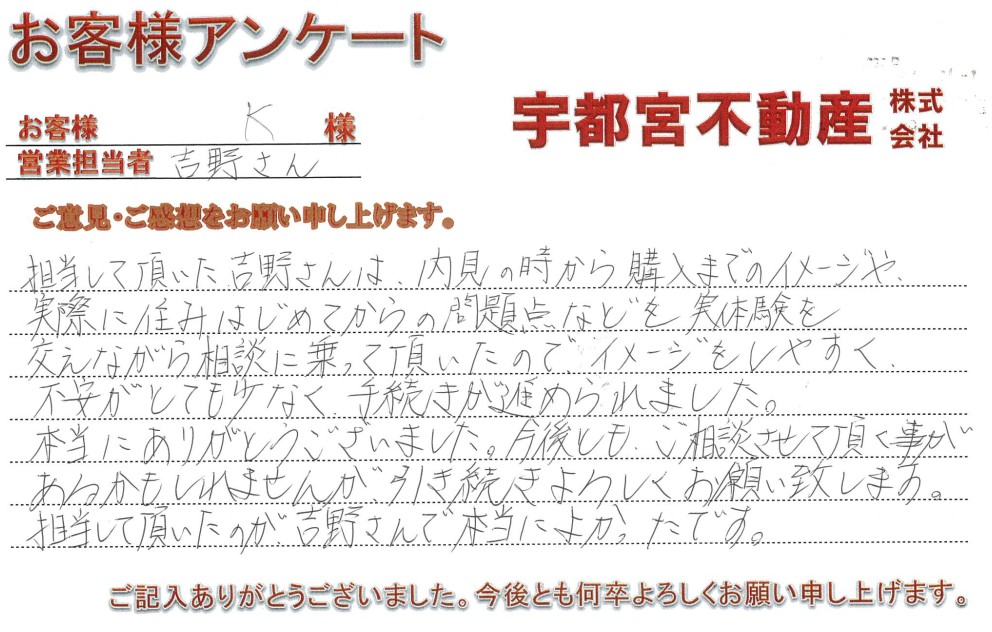 お客様アンケート
宇都宮不動産 株式会社
お客様 K 様
営業担当者 吉野さん
ご意見・ご感想をお願い申し上げます。
担当して頂いた吉野さんは、内見の時から購入までのイメージや、
実際に住みはじめてからの問題点などを実体験を
交えながら相談に乗って頂いたので、イメージをしやすく、
不安がとても少なく、手続きが進められました。
本当にありがとうございました。今後とも、ご相談させて頂く事が
あるかもしれませんが、引き続きよろしくお願い致します。
担当して頂いたのが、吉野さんで本当によかったです。
ご記入ありがとうございました。今後とも何卒よろしくお願い申し上げます。